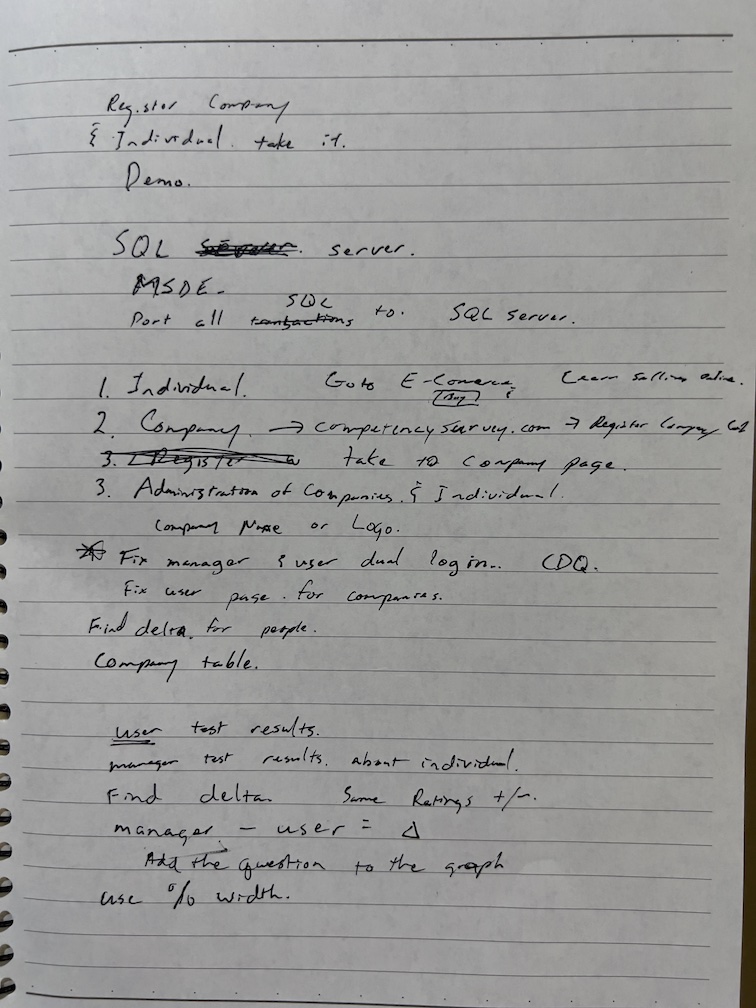 Register Company
& Individual. take it.
Demo.
SQL server.
MSDE.
SQL
Port all transactions to. SQL server.
1. Individual. Goto E-Comerce, Learn Selling online.
Buy
2. Company. → competencysurvey.com → Register Company
3. Register take to company page.
3. Administration of Companies. & Individual.
Company Name or Logo.
* Fix manager & user dual login.. CDQ.
Fix user page. for companies.
Find delta. for people.
Company table.
user test results.
manager test results. about individual.
Find delta. Same Ratings +/-.
manager - user = Δ
Add the question to the graph
use % width.